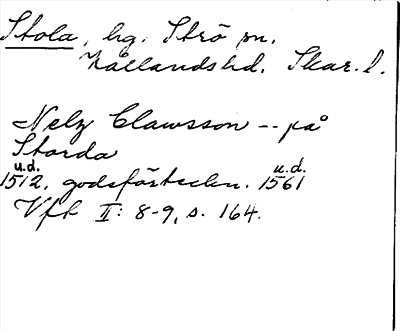 Stola, hg. Strö sn.
Kållandshd. Skar. l.
Nelz Clawsson -- på
Storda
u.d. u.d.
1512, godsförteckn. 1561
Vfk II: 8-9, s. 164.